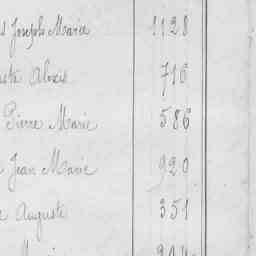 Joseph Marie 1128
Alexis 716
Pierre Marie 586
Jean Marie 920
Auguste 351